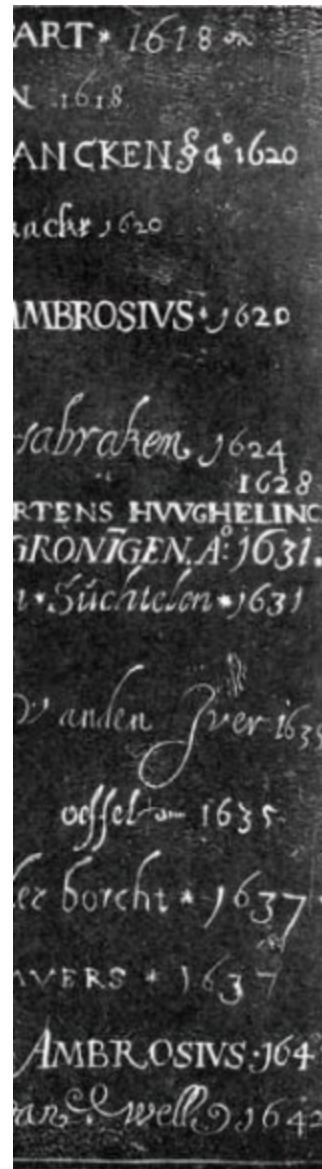 ART * 1618
N 1618
ANCKEN § aº 1620
nacke 1620
AMBROSIVS * 1620
sabraken 1624
1628
RTENS HVVGHELINC
GRONĪGEN. Aº: 1631.
n * Süchtelen * 1631
V anden Yver 1635
oessel 1635
der borcht * 1637
AVERS * 1637
AMBROSIVS * 164
van well 1642